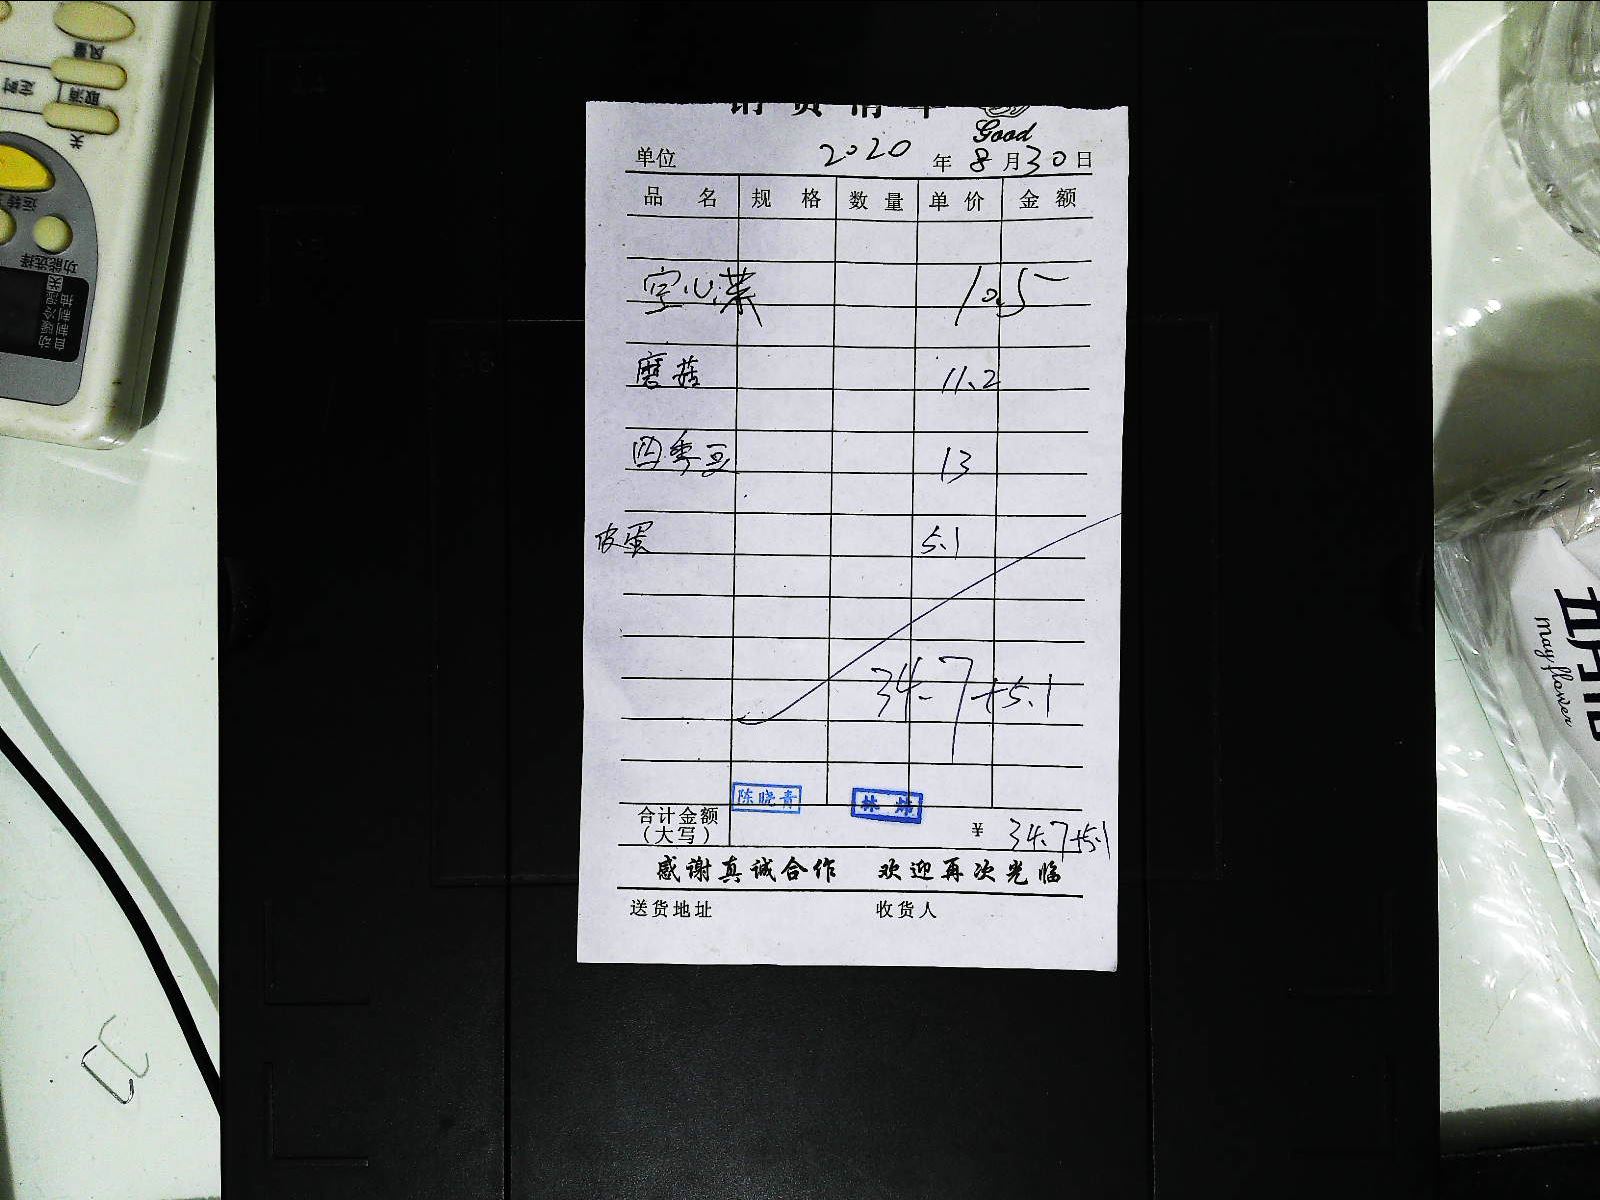 销货清单
Good
单位 2020年8月30日
品名 规格 数量 单价 金额
空心菜 10.5
磨菇 11.2
四季豆 13
皮蛋 5.1
34.7+5.1
陈晓青 林炜
合计金额
(大写) ¥ 34.7+5.1
感谢真诚合作 欢迎再次光临
送货地址 收货人
风量
定时 取消
关
运转
功能选择
自动 制暖 制冷 抽湿
五月花
May flower